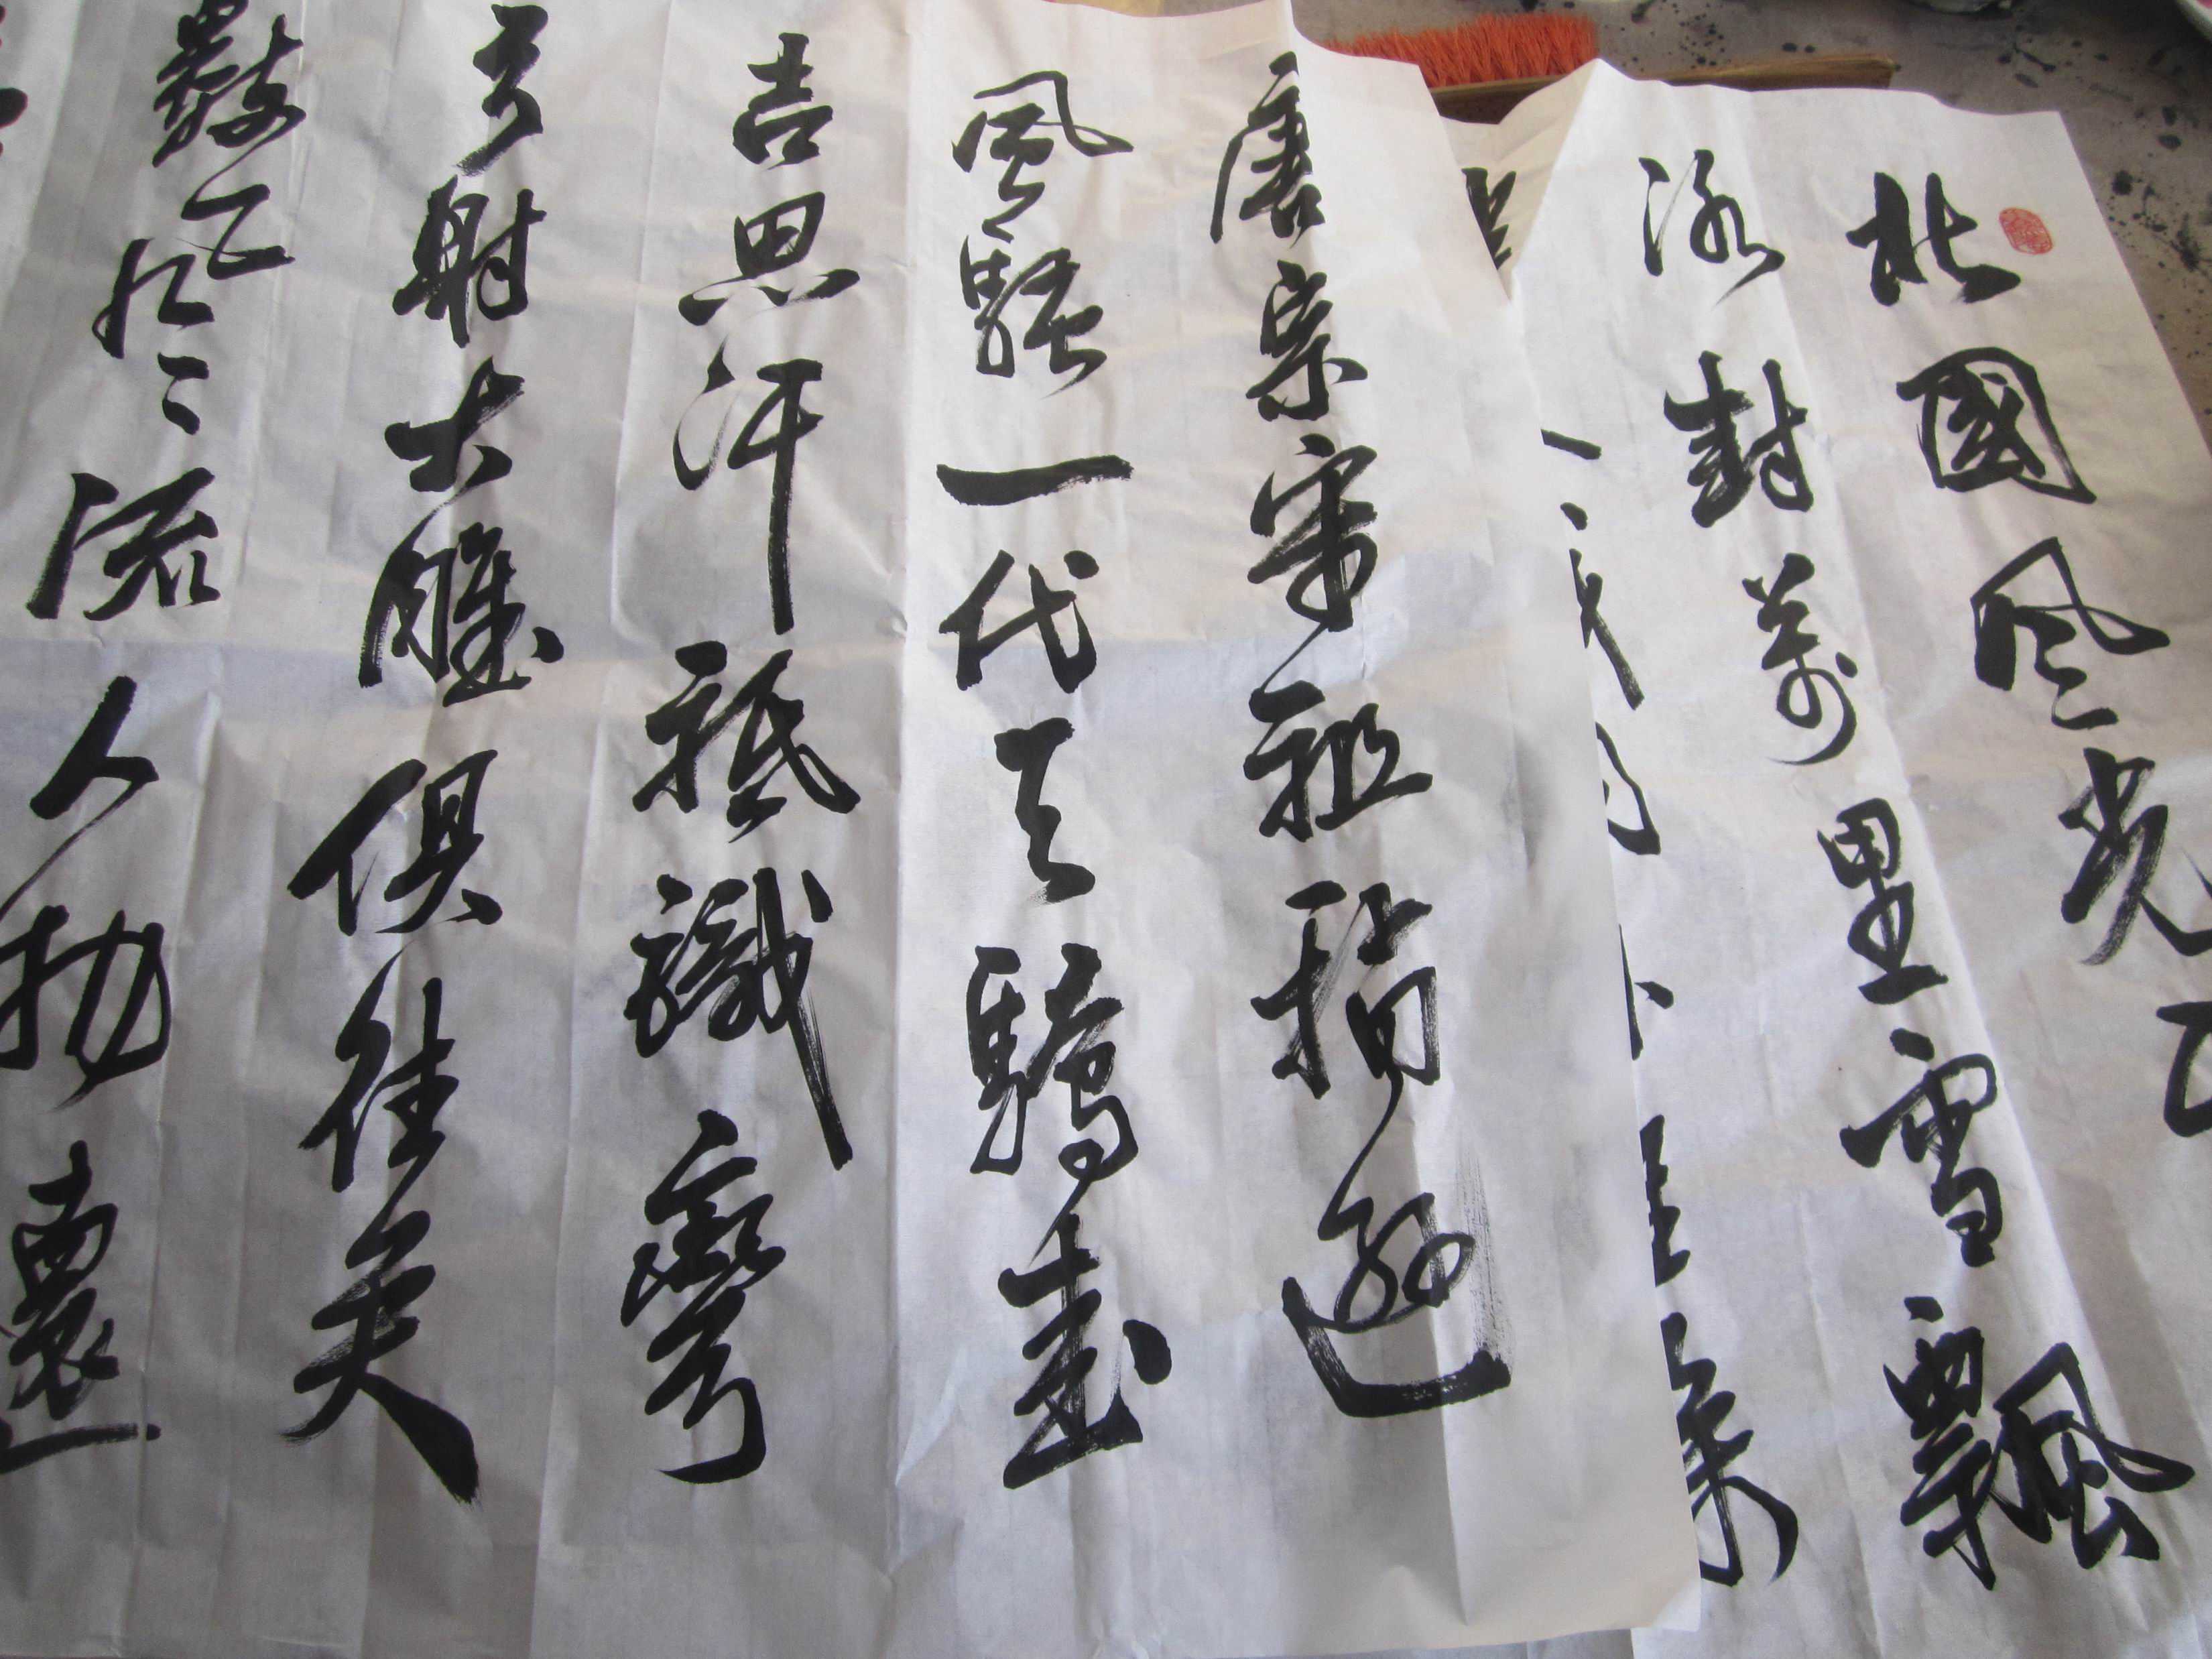 北國风光
冰封萬里雪飄
唐宗宋祖稍遜
風騷一代天驕成
吉思汗祇識彎
弓射大雕俱往矣
數风流人物還